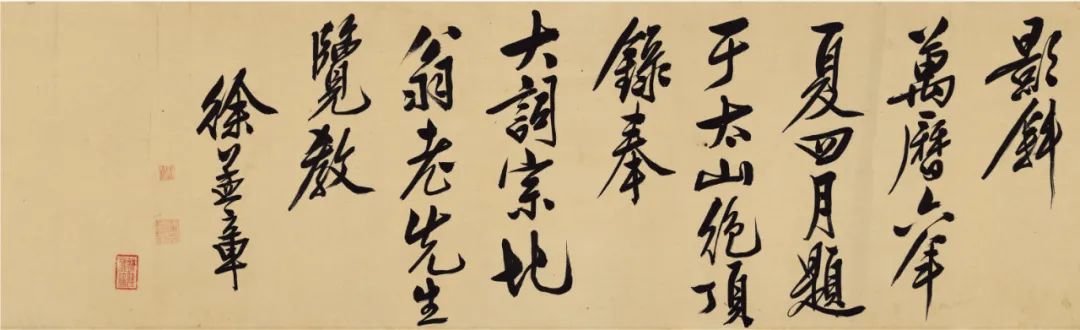 影斜
萬曆六年
夏四月題
于太山絕頂
錄奉
大詞宗北
翁老先生
覽教
徐章